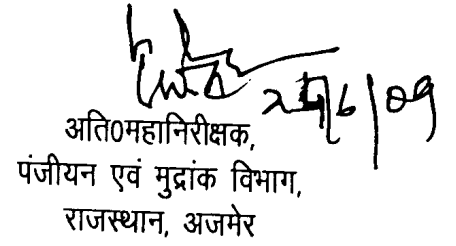 अति0महानिरीक्षक,
पंजीयन एवं मुद्रांक विभाग,
राजस्थान, अजमेर